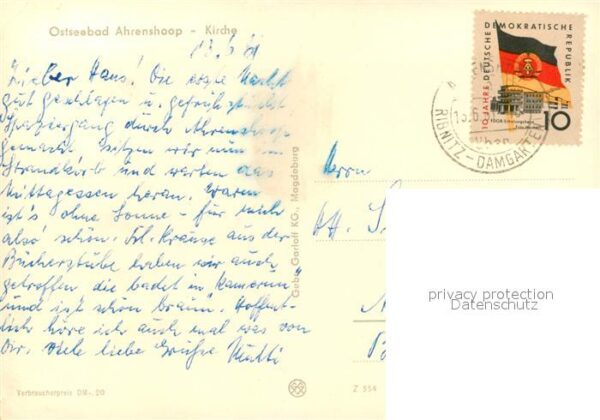 Ostseebad Ahrenshoop - Kirche
Lieber Hans! Die erste Nacht
gut geschlafen u. gefrühstückt
Spaziergang durch Ahrenshoop
gemacht sitzen wir nun im
Strandkorb und warten das
Mittagessen heran. Warm
ist's ohne Sonne - für mich
also schön. Frl. Krause aus der
Bücherstube haben wir auch
getroffen die badet in Kamerun
und ist schön braun. Hoffent-
lich höre ich auch mal was von
Dir. Viele liebe Grüße Mutti
Verbraucherpreis DM -,20
Gebr. Garloff KG., Magdeburg
Z 554
10 JAHRE DEUTSCHE DEMOKRATISCHE REPUBLIK
10
RIBNITZ-DAMGARTEN
Herrn
privacy protection
Datenschutz